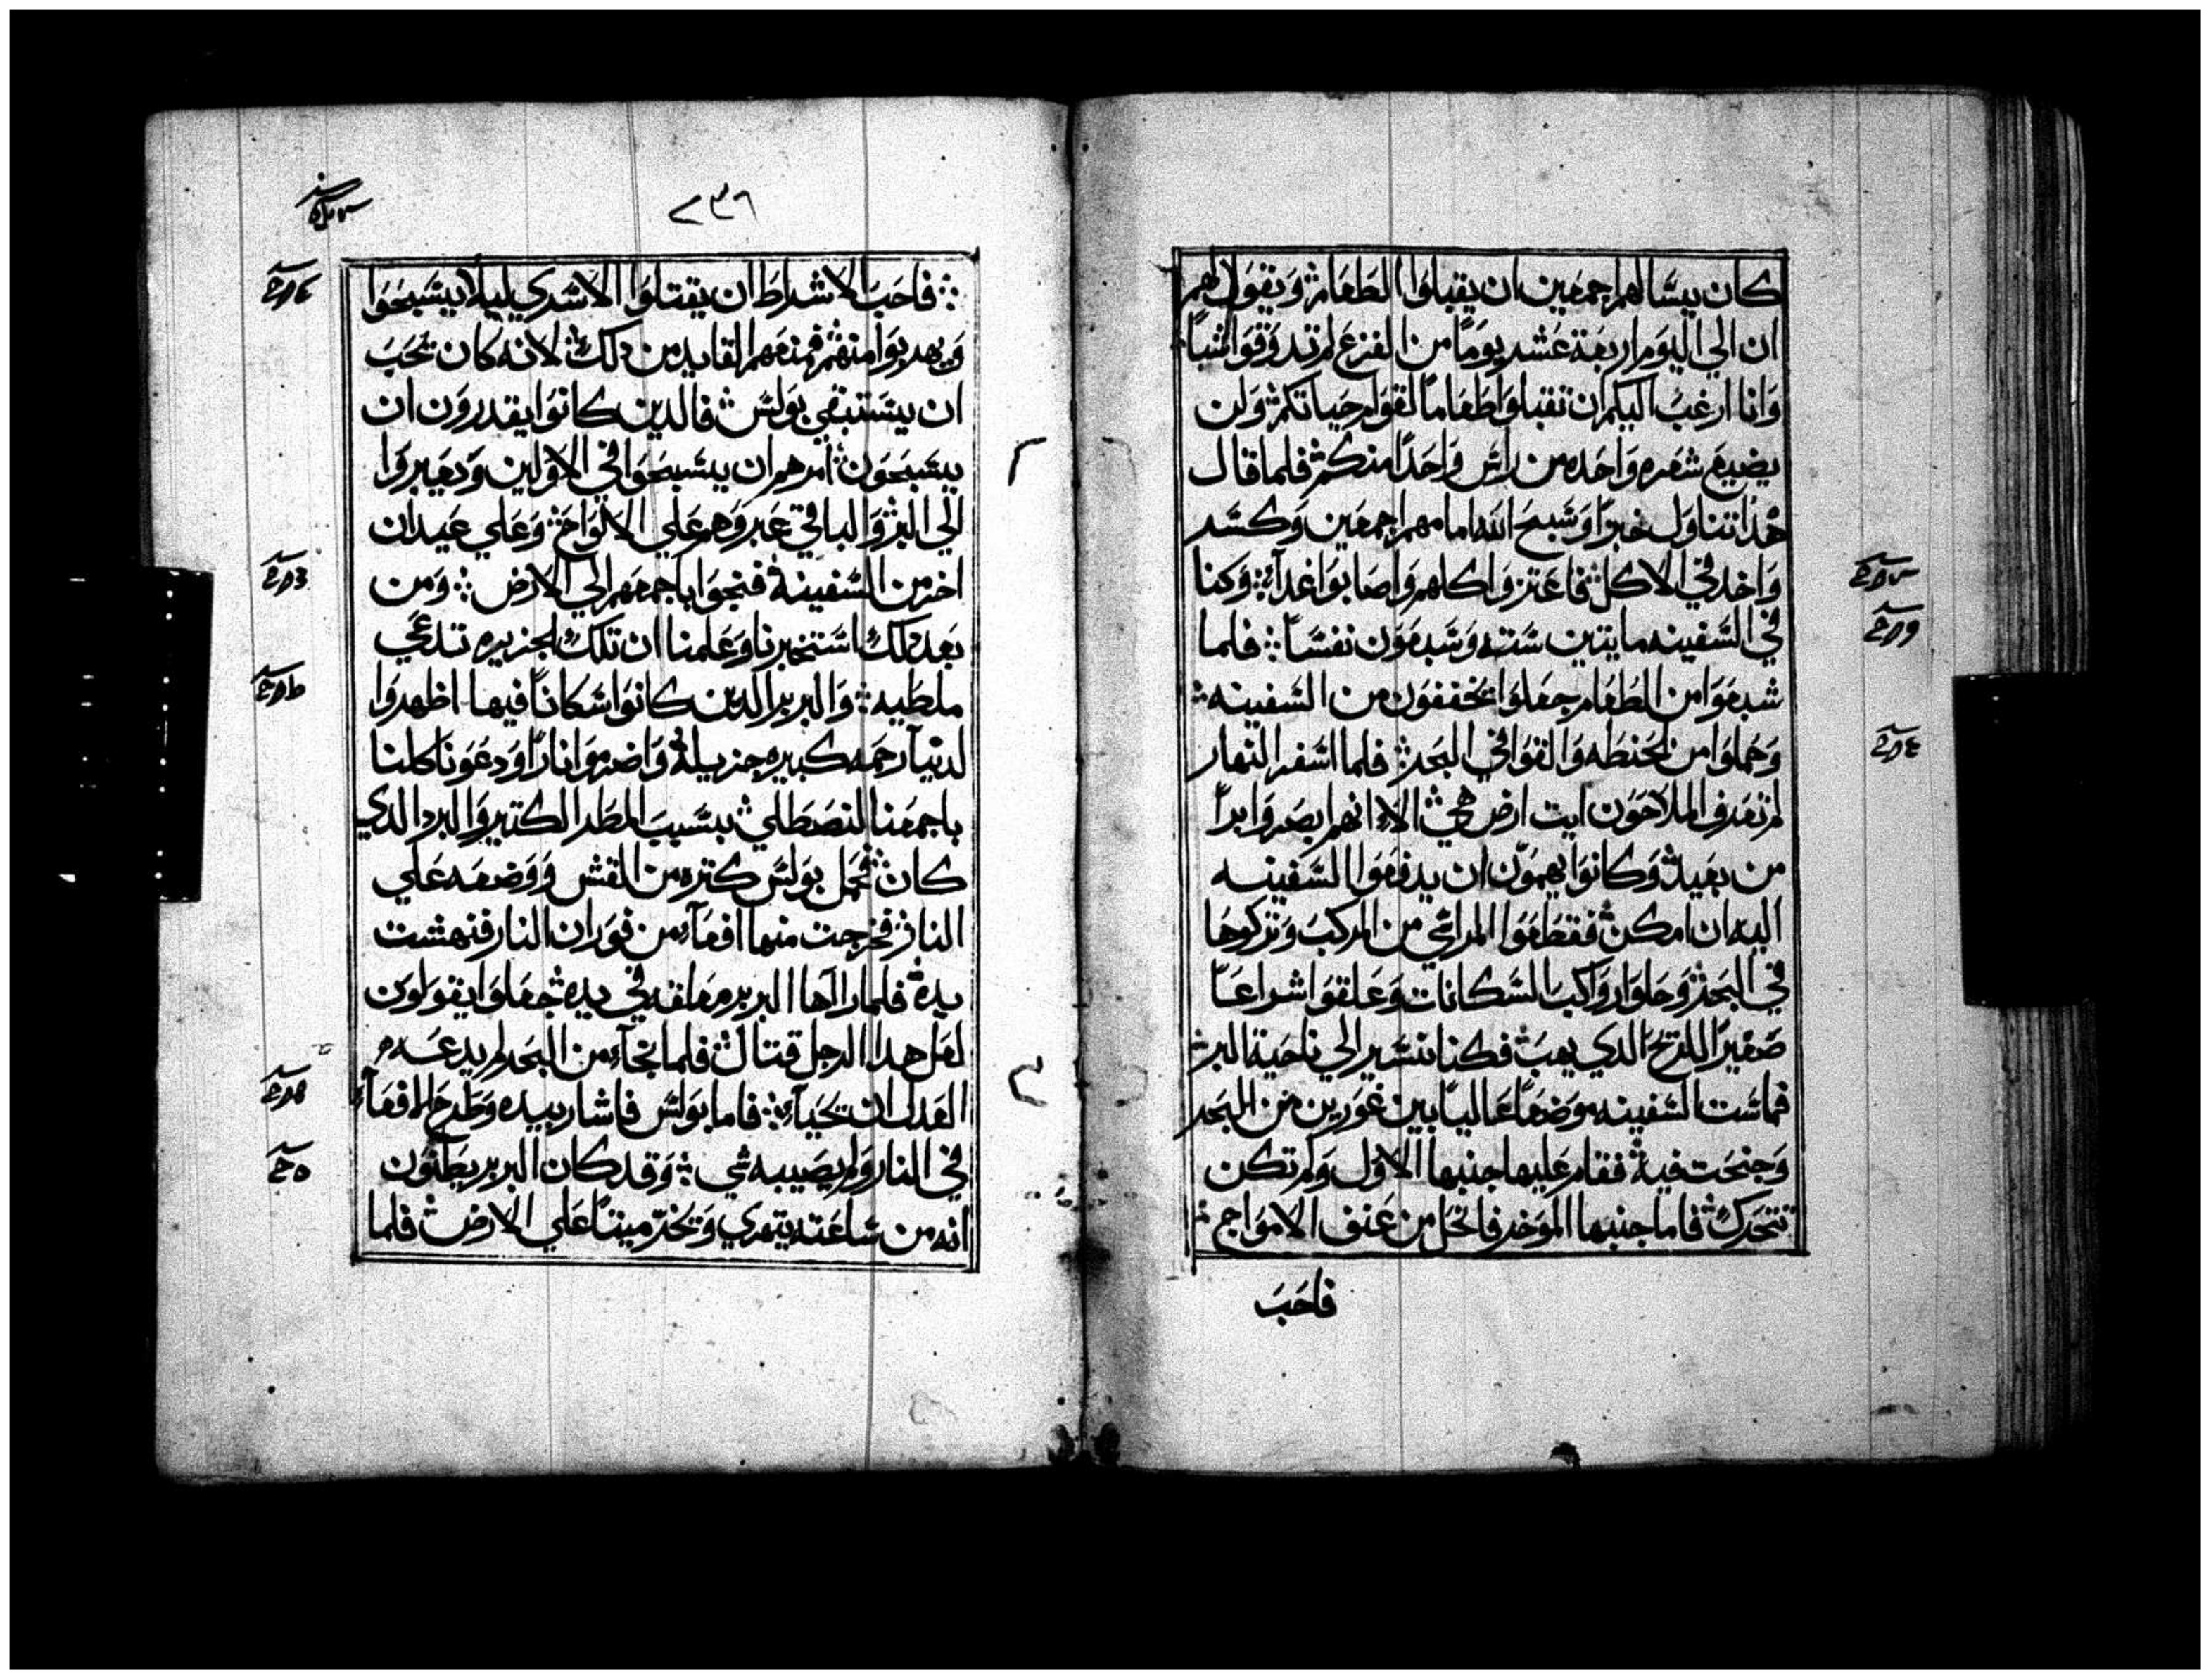 كان يسالهم اجمعين ان يقبلوا الطعام ويقول لهم
ان الي اليوم اربعة عشر يوما من الفزع لم تدوقوا شيا
وانا ارغب اليكم ان تقبلوا طعاما لقوام حياتكم ولن
يضيع شعره واحده من راس واحدا منكم فلما قال
هدا تناول خبزا وسبح الله امامهم اجمعين وكسر
واخد في الاكل فاعتزوا كلهم واصابوا غدآء وكنا
في السفينه مايتين سته وسبعون نفسا فلما
شبعوا من الطعام جعلوا يخففون من السفينه
وحملوا من الحنطه والقوا في البحر فلما اسفر النهار
لم تعرف الملاحون ايت ارض هي الا انهم بصروا برا
من بعيد وكانوا يهمون ان يدفعوا السفينه
اليه ان امكن فقطعوا المراسي من المركب وتركوها
في البحر وحلوا رواكب السكانات وعلقوا شراعا
صغيرا للريح الدي يهب فكنا نسير الي ناحية البر
فماست السفينه موضعا عاليا بين غورين من البحر
وجنحت فيه فقام عليها جنبها الاول ولم تكن
تتحرك فاما جنبها الموخر فانحل من عنف الامواج
فاحب
٢٣٦
فاحب الاشراط ان يقتلوا الاسري ليلا يسبحوا
ويهربوا منهم فمنعهم القايد من دلك لانه كان يحب
ان يستبقي بولس فالدين كانوا يقدرون ان
يسبحون امرهم ان يسبحوا في الاولين ويعبروا
الي البر والباقي عبروهم علي الالواح وعلي عيدان
اخر من السفينه فنجوا باجمعهم الي الارض ومن
بعد دلك استخبرنا وعلمنا ان تلك الجزيره تدعي
ملطيه والبربر الدين كانوا سكانا فيها اظهروا
لدينا رحمه كبيره جزيله واضرموا نارا ودعونا كلنا
باجمعنا لنصطلي بسبب المطر الكتير والبرد الدي
كان فحمل بولس كتره من القش ووضعه علي
النار فخرجت منها افعآء من فوران النار فنهشت
يده فلما راآها البربر معلقه في يده جعلوا يقولون
لعل هدا الرجل قتال فلما نجآء من البحر لم يدعه
العدل ان يحيآء فاما بولس فاشار بيده وطرح الافعآء
في النار ولم يصيبه شي وقد كان البربر يظنون
انه من ساعته يتهري ويخر ميتا علي الارض فلما